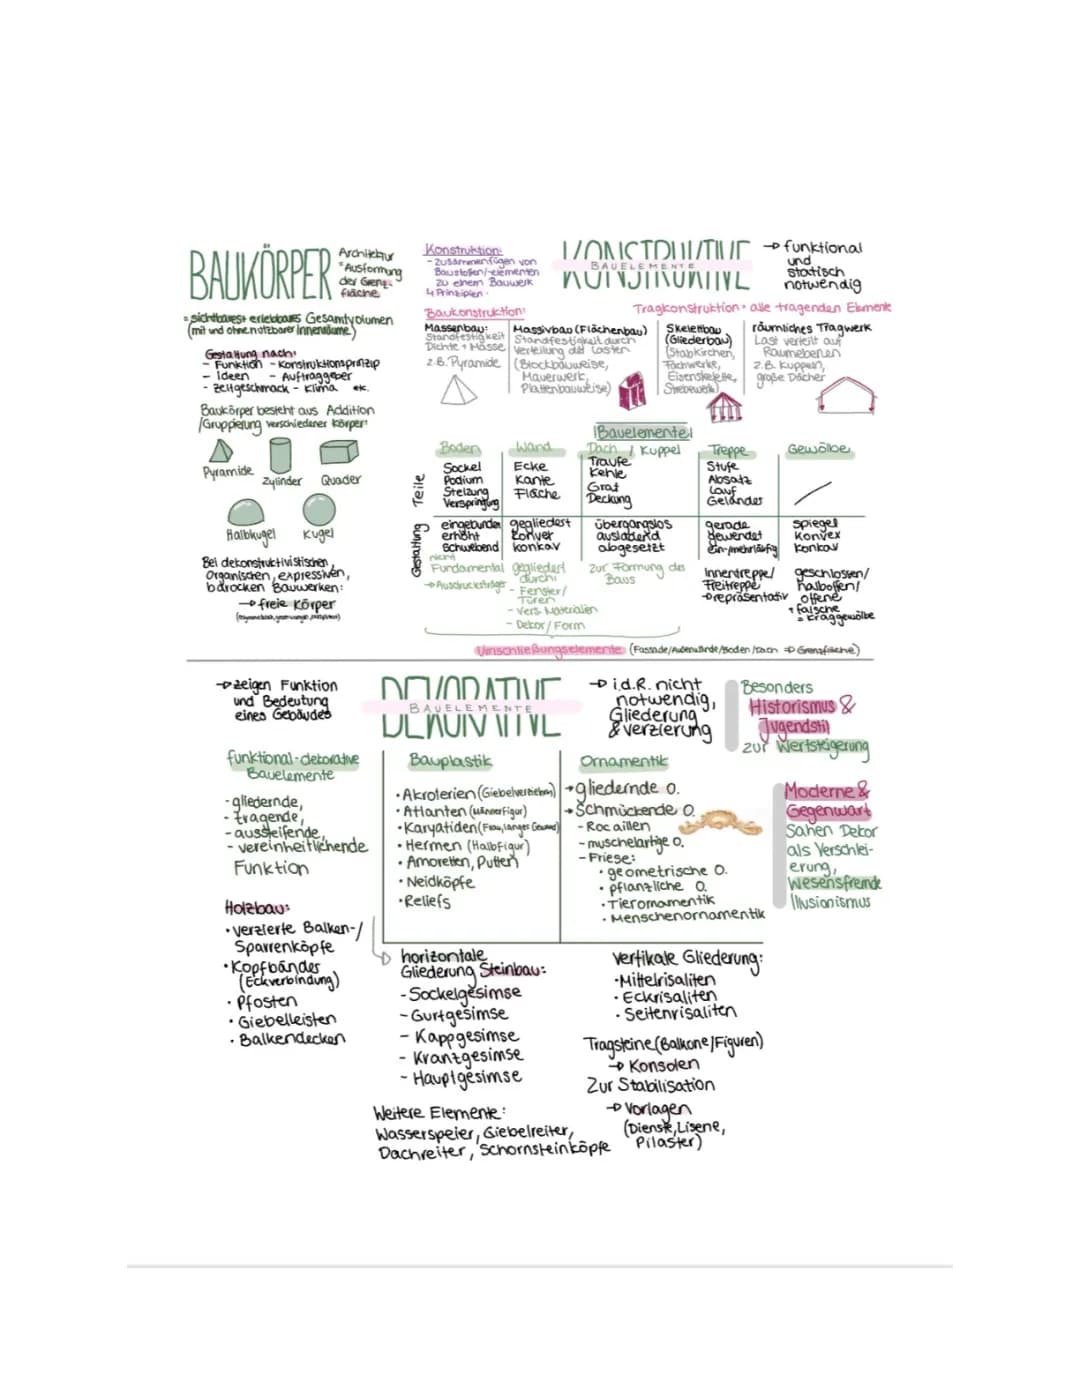 BAUKÖRPER
Architektur
"Ausformung
der Grenz-
fläche
= sichtbares + erlebbares Gesamtvolumen
(mit und ohne nutzbarer Innenräume)
Gestaltung nach:
- Funktion - Konstruktionsprinzip
- Ideen - Auftraggeber
- Zeitgeschmack - Klima etc.
Baukörper besteht aus Addition
/Gruppierung verschiedener Körper:
Pyramide
Zylinder
Quader
Halbkugel
Kugel
Bei dekonstruktivistischen,
Organischen, expressiven,
barocken Bauwerken:
→ freie Körper
Konstruktion:
- Zusammenfügen von
Baustoffen/-elementen
zu einem Bauwerk
↳ Prinzipien:
KONSTRUKTIVE
BAUELEMENTE
→ funktional
und
statisch
notwendig
Baukonstruktion:
Tragkonstruktion = alle tragenden Elemente
Massenbau:
Standfestigkeit
Dichte + Masse
z.B. Pyramide
Massivbau (Flächenbau)
Standfestigkeit durch
Verteilung der Lasten
(Blockbauweise,
Mauerwerk,
Plattenbauweise)
Skelettbau
(Gliederbau)
(Stabkirchen,
Fachwerke,
Eisenskelette,
Strebewerk)
räumliches Tragwerk
Last verteilt auf
Raumebenen
z.B. Kuppeln,
große Dächer
Bauelemente:
Boden Wand Dach / Kuppel Treppe Gewölbe
Teile
Sockel
Podium
Stelzung
Verspringung
Ecke
Kante
Fläche
Traufe
Kehle
Grat
Deckung
Stufe
Absatz
Lauf
Geländer
Gestaltung
eingebunden
erhöht
schwebend
gegliedert
konvex
konkav
übergangslos
ausladend
abgesetzt
gerade
gewendet
ein-/mehrläufig
Spiegel
Konvex
Konkav
nicht
Fundamental
→ Ausdrucksträger
gegliedert
durch:
- Fenster/
Türen
- Vers. Materialien
- Dekor/Form
zur Formung des
Baus
Innentreppe/
Freitreppe
→ repräsentativ
geschlossen/
halboffen/
offene
+ falsche
= Kraggewölbe
Umschließungselemente (Fassade/Außenwände/Boden/Dach ⇒ Grenzfläche)
→ zeigen Funktion
und Bedeutung
eines Gebäudes
DEKORATIVE
BAUELEMENTE
→ i.d.R. nicht
notwendig,
Gliederung
& verzierung
Besonders
Historismus &
Jugendstil
zur Wertsteigerung
funktional-dekorative
Bauelemente
- gliedernde,
- tragende,
- aussteifende,
- vereinheitlichende
Funktion
Holzbau:
• verzierte Balken-/
Sparrenköpfe
• Kopfbänder
(Eckverbindung)
• Pfosten
• Giebelleisten
• Balkendecken
Bauplastik
• Akroterien (Giebelverziehrn)
• Atlanten (Männerfigur)
• Karyatiden (Frau, langes Gewand)
• Hermen (Halbfigur)
• Amoretten, Putten
• Neidköpfe
• Reliefs
Ornamentik
→ gliedernde O.
→ Schmückende O.
- Rocaillen
- muschelartige O.
- Friese:
• geometrische O.
• pflanzliche O.
• Tierornamentik
• Menschenornamentik
Moderne &
Gegenwart
Sahen Dekor
als Verschlei-
erung,
Wesensfremde
Illusionismus
horizontale
Gliederung Steinbau:
- Sockelgesimse
- Gurtgesimse
- Kappgesimse
- Kranzgesimse
- Hauptgesimse
vertikale Gliederung:
• Mittelrisaliten
• Eckrisaliten
• Seitenrisaliten
Tragsteine (Balkone/Figuren)
→ Konsolen
Zur Stabilisation
→ Vorlagen
(Dienste, Lisene,
Pilaster)
Weitere Elemente:
Wasserspeier, Giebelreiter,
Dachreiter, Schornsteinköpfe